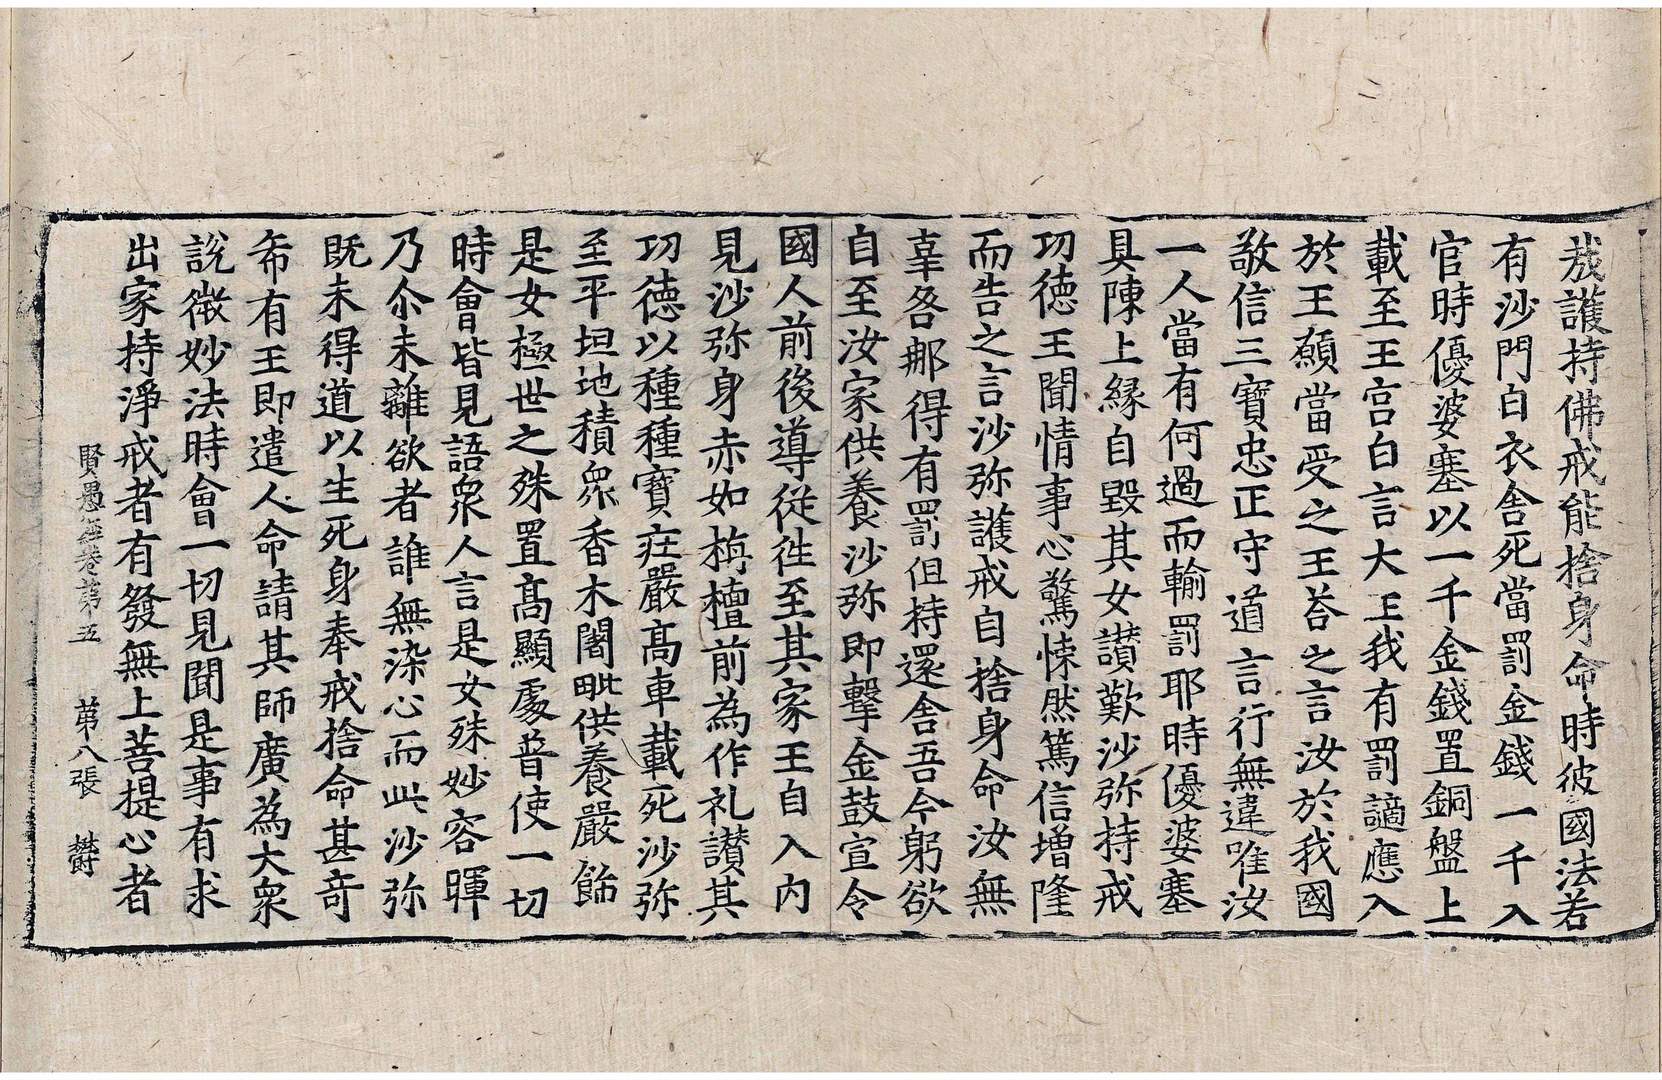 哉護持佛戒能捨身命時彼國法若
有沙門白衣舍死當罰金錢一千入
官時優婆塞以一千金錢置銅盤上
載至王宮白言大王我有罰謫應入
於王願當受之王荅之言汝於我國
敬信三寶忠正守道言行無違唯汝
一人當有何過而輸罰耶時優婆塞
具陳上緣自毀其女讃歎沙弥持戒
功德王聞情事心驚悚然篤信增隆
而告之言沙弥護戒自捨身命汝無
辜咎那得有罰但持還舍吾今躬欲
自至汝家供養沙弥即擊金鼓宣令
國人前後導從徃至其家王自入內
見沙弥身赤如栴檀前為作礼讃其
功德以種種寶莊嚴高車載死沙弥
至平坦地積衆香木闍毗供養嚴飾
是女極世之殊置高顯處普使一切
時會皆見語衆人言是女殊妙容暉
乃尒未離欲者誰無染心而此沙弥
既未得道以生死身奉戒捨命甚奇
希有王即遣人命請其師廣為大衆
說微妙法時會一切見聞是事有求
出家持淨戒者有發無上菩提心者
賢愚經卷第五 第八張 欝